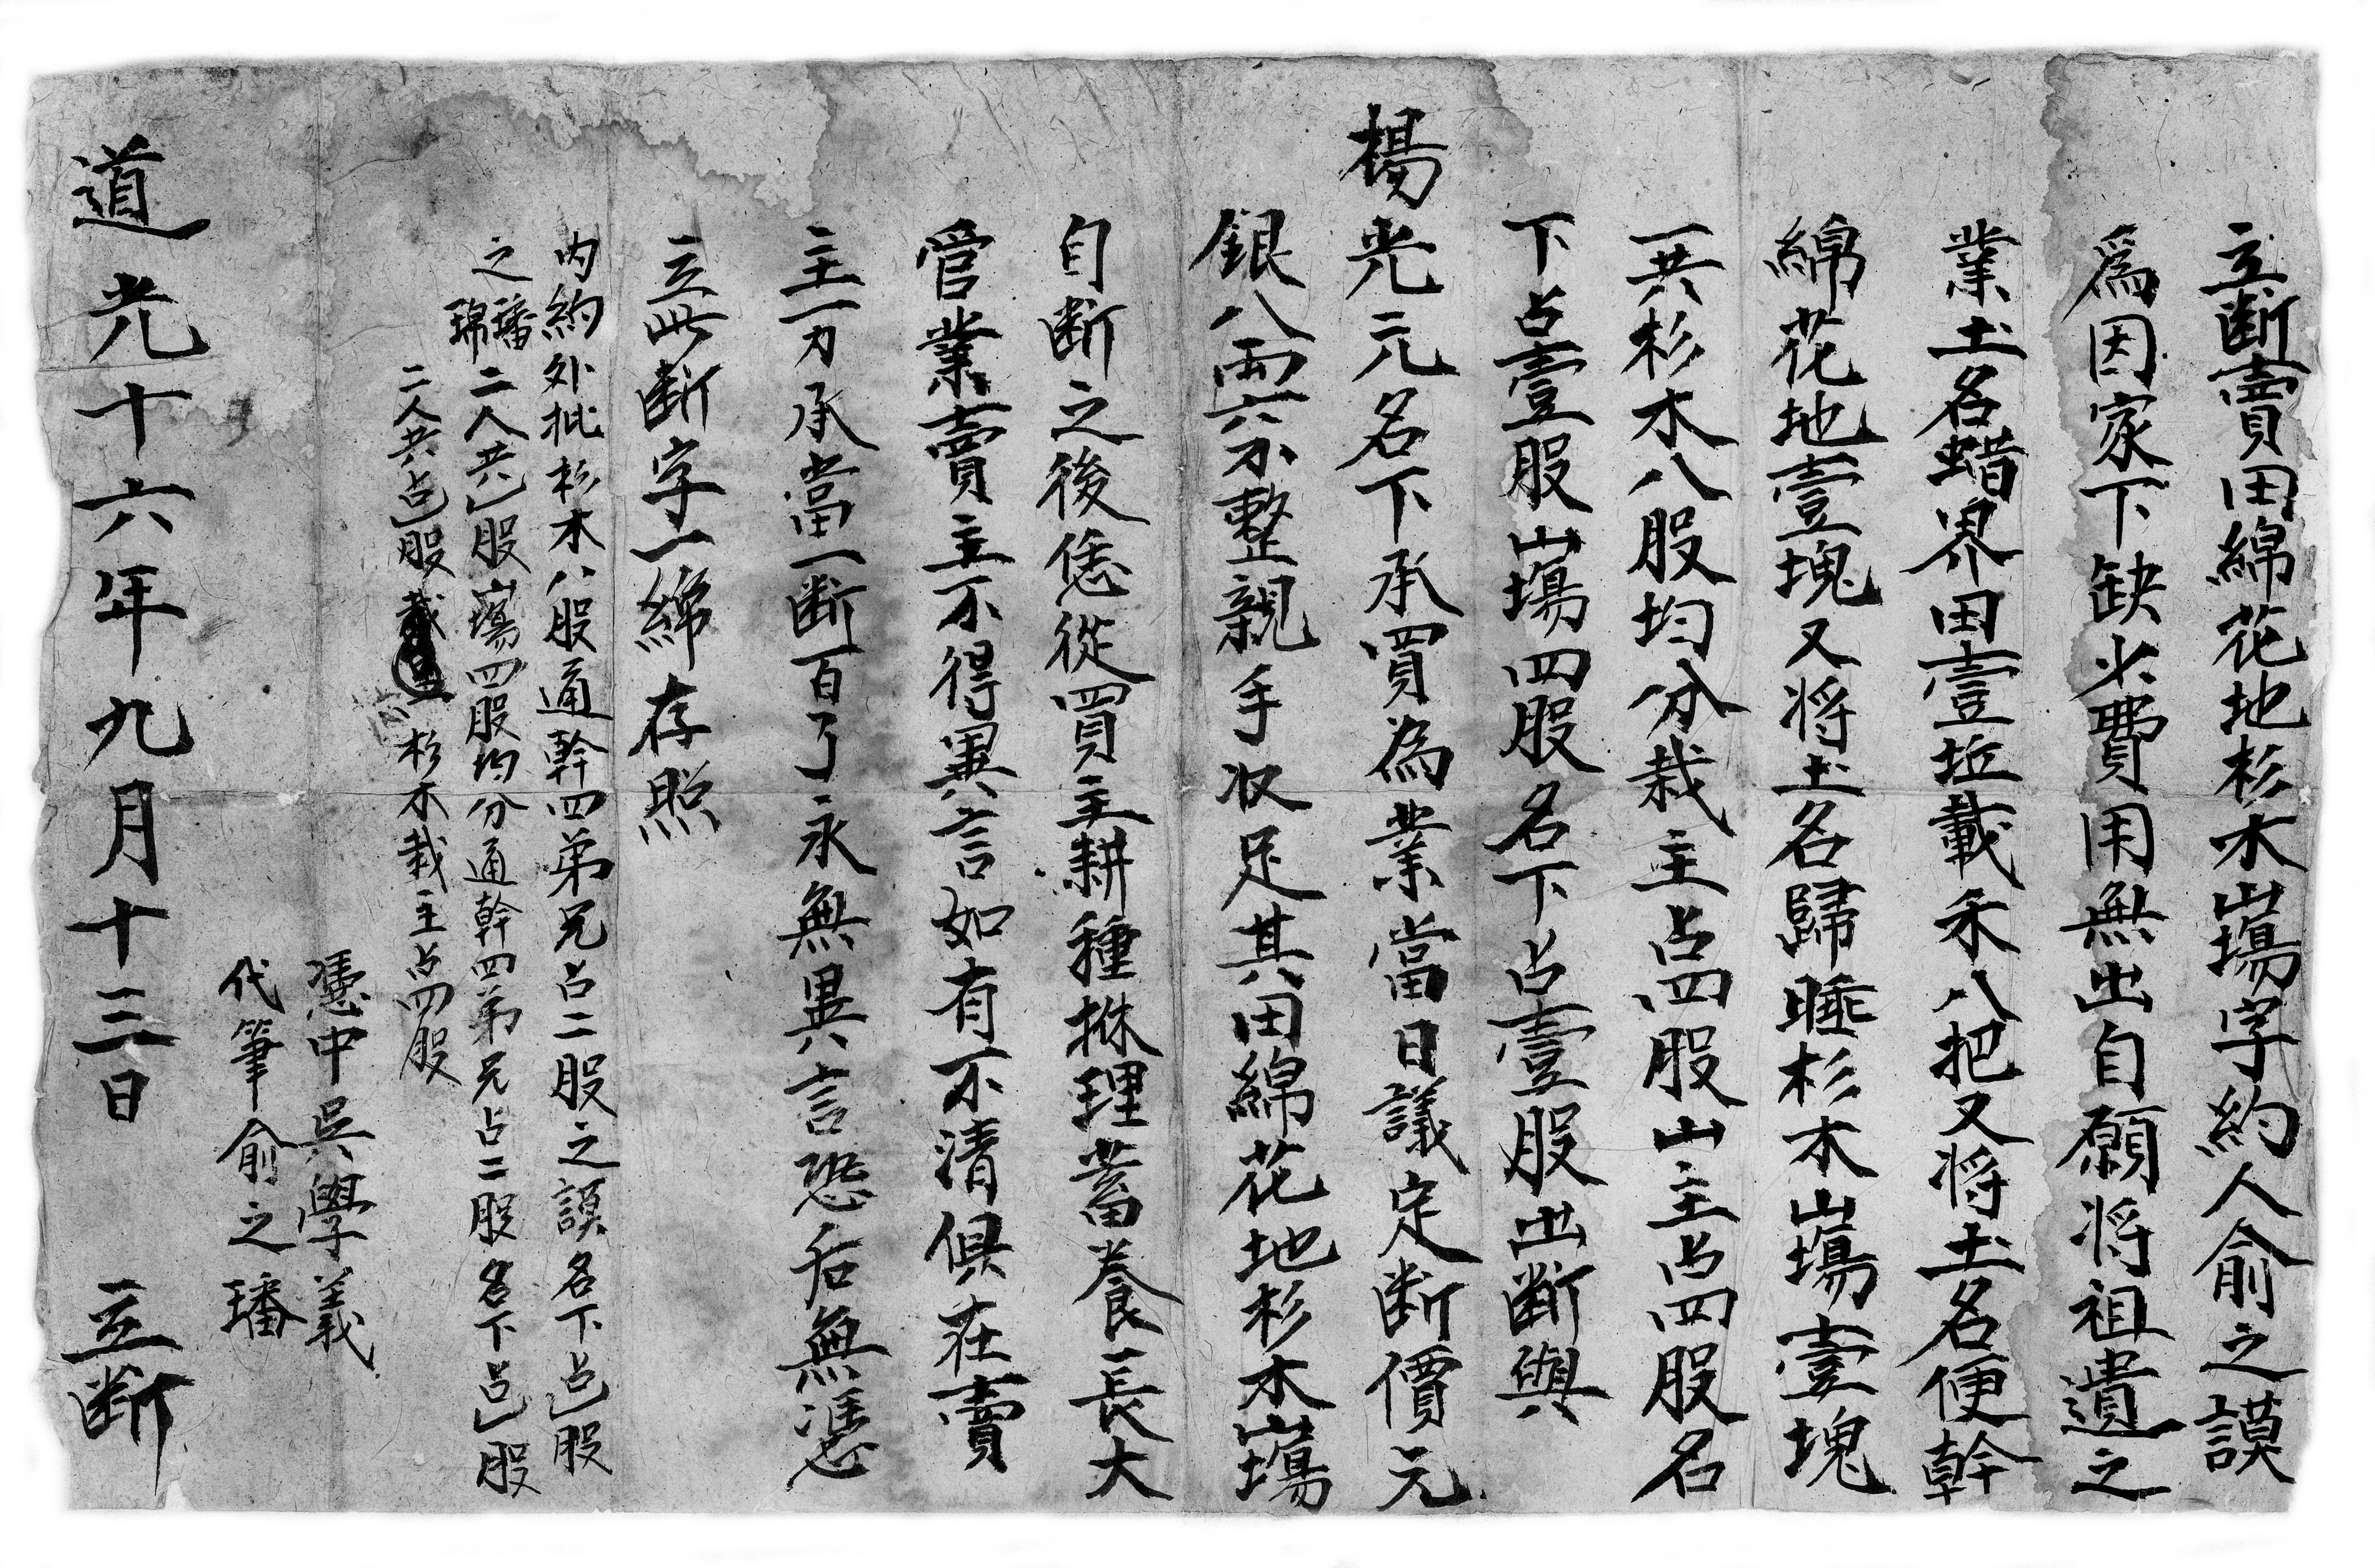 立断賣田綿花地杉木山塲字約人俞之謨
爲因家下缺少費用無出自願将祖遺之
業土名蜡界田壹坵載禾八把又将土名便幹
綿花地壹塊又将土名歸睡杉木山塲壹塊
一共杉木八股均分栽主占四股山主占四股名
下占壹股山塲四股名下占壹股出断與
楊光元名下承買為業當日議定断價元
銀八両六分整親手收足其田綿花地杉木山塲
自断之後恁從買主耕種捈理蓄養長大
管業賣主不得異言如有不清俱在賣
主一力承當一断百了永無異言恐后無憑
立此断字一綿存照
内約外批杉木八股通幹四弟兄占二股之謨名下占一股
之璠錦二人共占一股山塲四股均分通幹四弟兄占二股名下占一股
二人共占一股杉木栽主占四股
憑中吳學義
代筆俞之璠
道光十六年九月十三日 立断